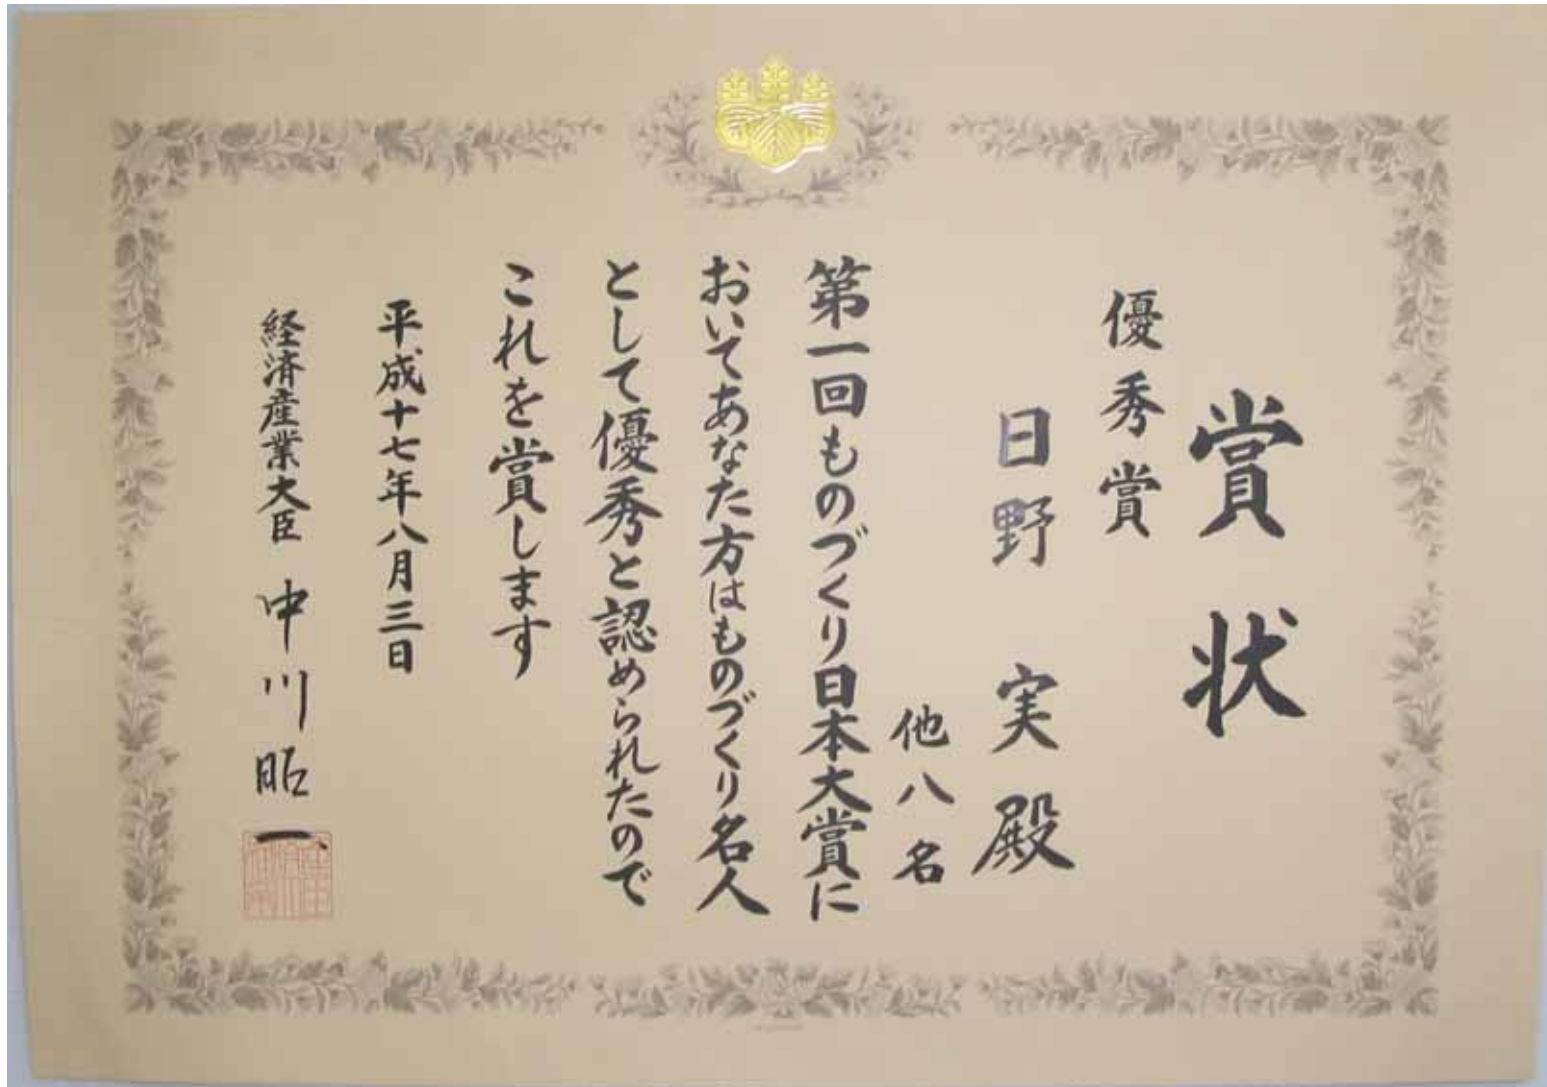 賞状
優秀賞
日野 実殿
他八名
第一回ものづくり日本大賞に
おいてあなた方はものづくり名人
として優秀と認められたので
これを賞します
平成十七年八月三日
経済産業大臣 中川昭一